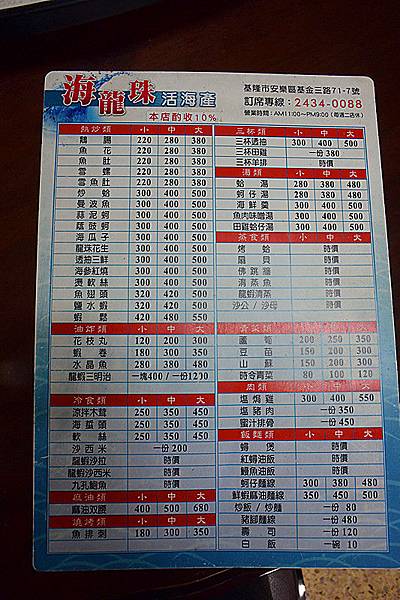 海龍珠活海產
本店酌收10%
基隆市安樂區基金三路71-7號
訂席專線：2434-0088
營業時間：AM11:00～PM9:00 (每週二店休)
熱炒類 小 中 大
鵝腸 220 280 380
魚花 220 280 380
魚肚 220 280 380
雪螺 220 280 380
雪魚肚 220 280 380
炒蛤 300 400 500
曼波魚 300 400 500
蒜泥蚵 300 400 500
蔭豉蚵 300 400 500
海瓜子 300 400 500
龍珠花生 300 400 500
透抽三鮮 300 400 500
海參紅燒 300 400 500
燙軟絲 300 400 500
魚翅頭 320 420 500
鹽水蝦 320 420 500
蝦鬆 420 480 550
油炸類 小 中 大
花枝丸 120 200 300
蝦卷 180 300 350
水晶魚 280 380 480
龍蝦三明治 一塊400 / 一份1200
冷食類 小 中 大
涼拌木茸 250 350 450
海蜇頭 250 350 450
軟絲 250 350 450
沙西米 一份200
龍蝦沙拉 時價
龍蝦沙西米 時價
九孔鮑魚 時價
麻油類 小 中 大
麻油双腰 400 500 680
燒烤類 小 中 大
魚排刺 180 300 350
三杯類 小 中 大
三杯透抽 300 400 500
三杯田雞 一份380
三杯羊排 時價
湯類 小 中 大
蛤湯 280 380 480
蚵仔湯 280 380 480
海鮮羹 300 400 500
魚肉味噌湯 300 400 500
田雞蛤仔湯 300 400 500
蒸食類 小 中 大
烤蛤 時價
扇貝 時價
佛跳牆 時價
清蒸魚 時價
龍蝦清蒸 時價
沙公 / 沙母 時價
青菜類 小 中 大
蘆筍 200 250 350
豆苗 150 200 300
山蘇 150 200 300
時令青菜 80 100 120
肉類 小 中 大
塩焗雞 300 400 550
塩豬肉 一份350
蜜汁排骨 一份450
飯麵類 小 中 大
蟳煲 時價
紅蟳油飯 時價
鰻魚油飯 時價
蚵仔麵線 300 380 480
鮮蝦麻油麵線 350 450 500
炒飯 / 炒麵 一份80
豬腳麵線 一份480
壽司 一份120
白飯 一碗10